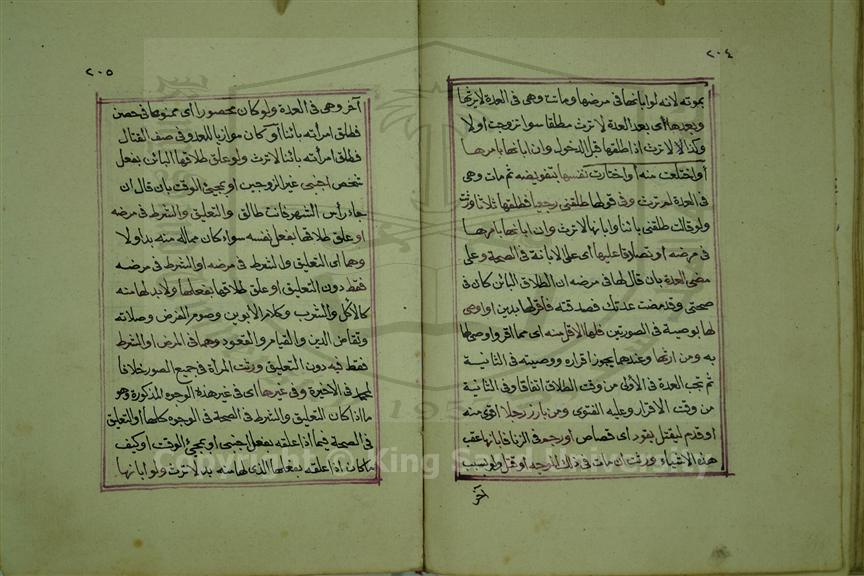 ٢٠٤
بموته لانه لو ابانها في مرضها وماتت وهي في العدة لا يرثها
وبعدها أي بعد العدة لا ترث مطلقا سوا تزوجت اولا
وكذا لا ترث اذا طلقها قبل الدخول وان ابانها بامرها
أو اختلعت منه أو اختارت نفسها بتفويضه ثم مات وهي
في العدة لم ترث وفي قولها طلقني رجعيا فطلقها ثلاثا ورثت
ولو قالت طلقني بائنا وابانها لا ترث وان ابانها بامرها
في مرضه أو تصادقا عليها أي على الابانة في الصحة وعلى
مضي العدة بان قال لها في مرضه ان الطلاق البائن كان في
صحتي وقد مضت عدتك فصدقته فأقر لها بدين او اوصى
لها بوصية في الصورتين فلها الاقل منه اي مما اقر واوصى لها
به ومن ارثها وعندهما يجوز اقراره ووصيته في الثانية
ثم تجب العدة في الاولى من وقت الطلاق اتفاقا وفي الثانية
من وقت الاقرار وعليه الفتوى ومن بارز رجلا اقوى منه
أو قدم ليقتل بقود اى قصاص أو رجم في الزنا فابانها عقب
هذه الاشياء ورثت ان مات في ذلك الوجه أو قتل ولو بسبب
آخر
٢٠٥
آخر وهي في العدة ولو كان محصورا اى ممنوعا في حصن
فطلق امراته بائنا أو كان موازيا للعدو في صف القتال
فطلق امرأته بائنا لا ترث ولو علق طلاقها البائن بفعل
شخص اجنبي غير الزوجين او بمجئ الوقت بان قال ان
جاء رأس الشهر فانت طالق والتعليق والشرط في مرضه
او علق طلاقها بفعل نفسه سواء كان مماله منه بد اولا
وهما اى التعليق والشرط في مرضه او الشرط في مرضه
فقط دون التعليق او علق طلاقها بفعلها ولا بد لها منه
كالأكل والشرب وكلام الأبوين وصوم الفرض وصلاته
وتقاضي الدين والقيام والقعود وهما في المرض او الشرط
فقط فيه دون التعليق ورثت المرأة في جميع الصور خلافا
لمحمد في الاخيرة وفي غيرها أي في غير هذه الوجوه المذكورة وهو
ما اذا كان التعليق والشرط في الصحة في الوجوه كلها أو التعليق
في الصحة فيما اذا علقه بفعل اجنبي او بمجئ الوقت او كيف
ما كان اذا علقه بفعلها الذى لها منه بد لا ترث ولو ابانها
Copyright © King Saud University
1957